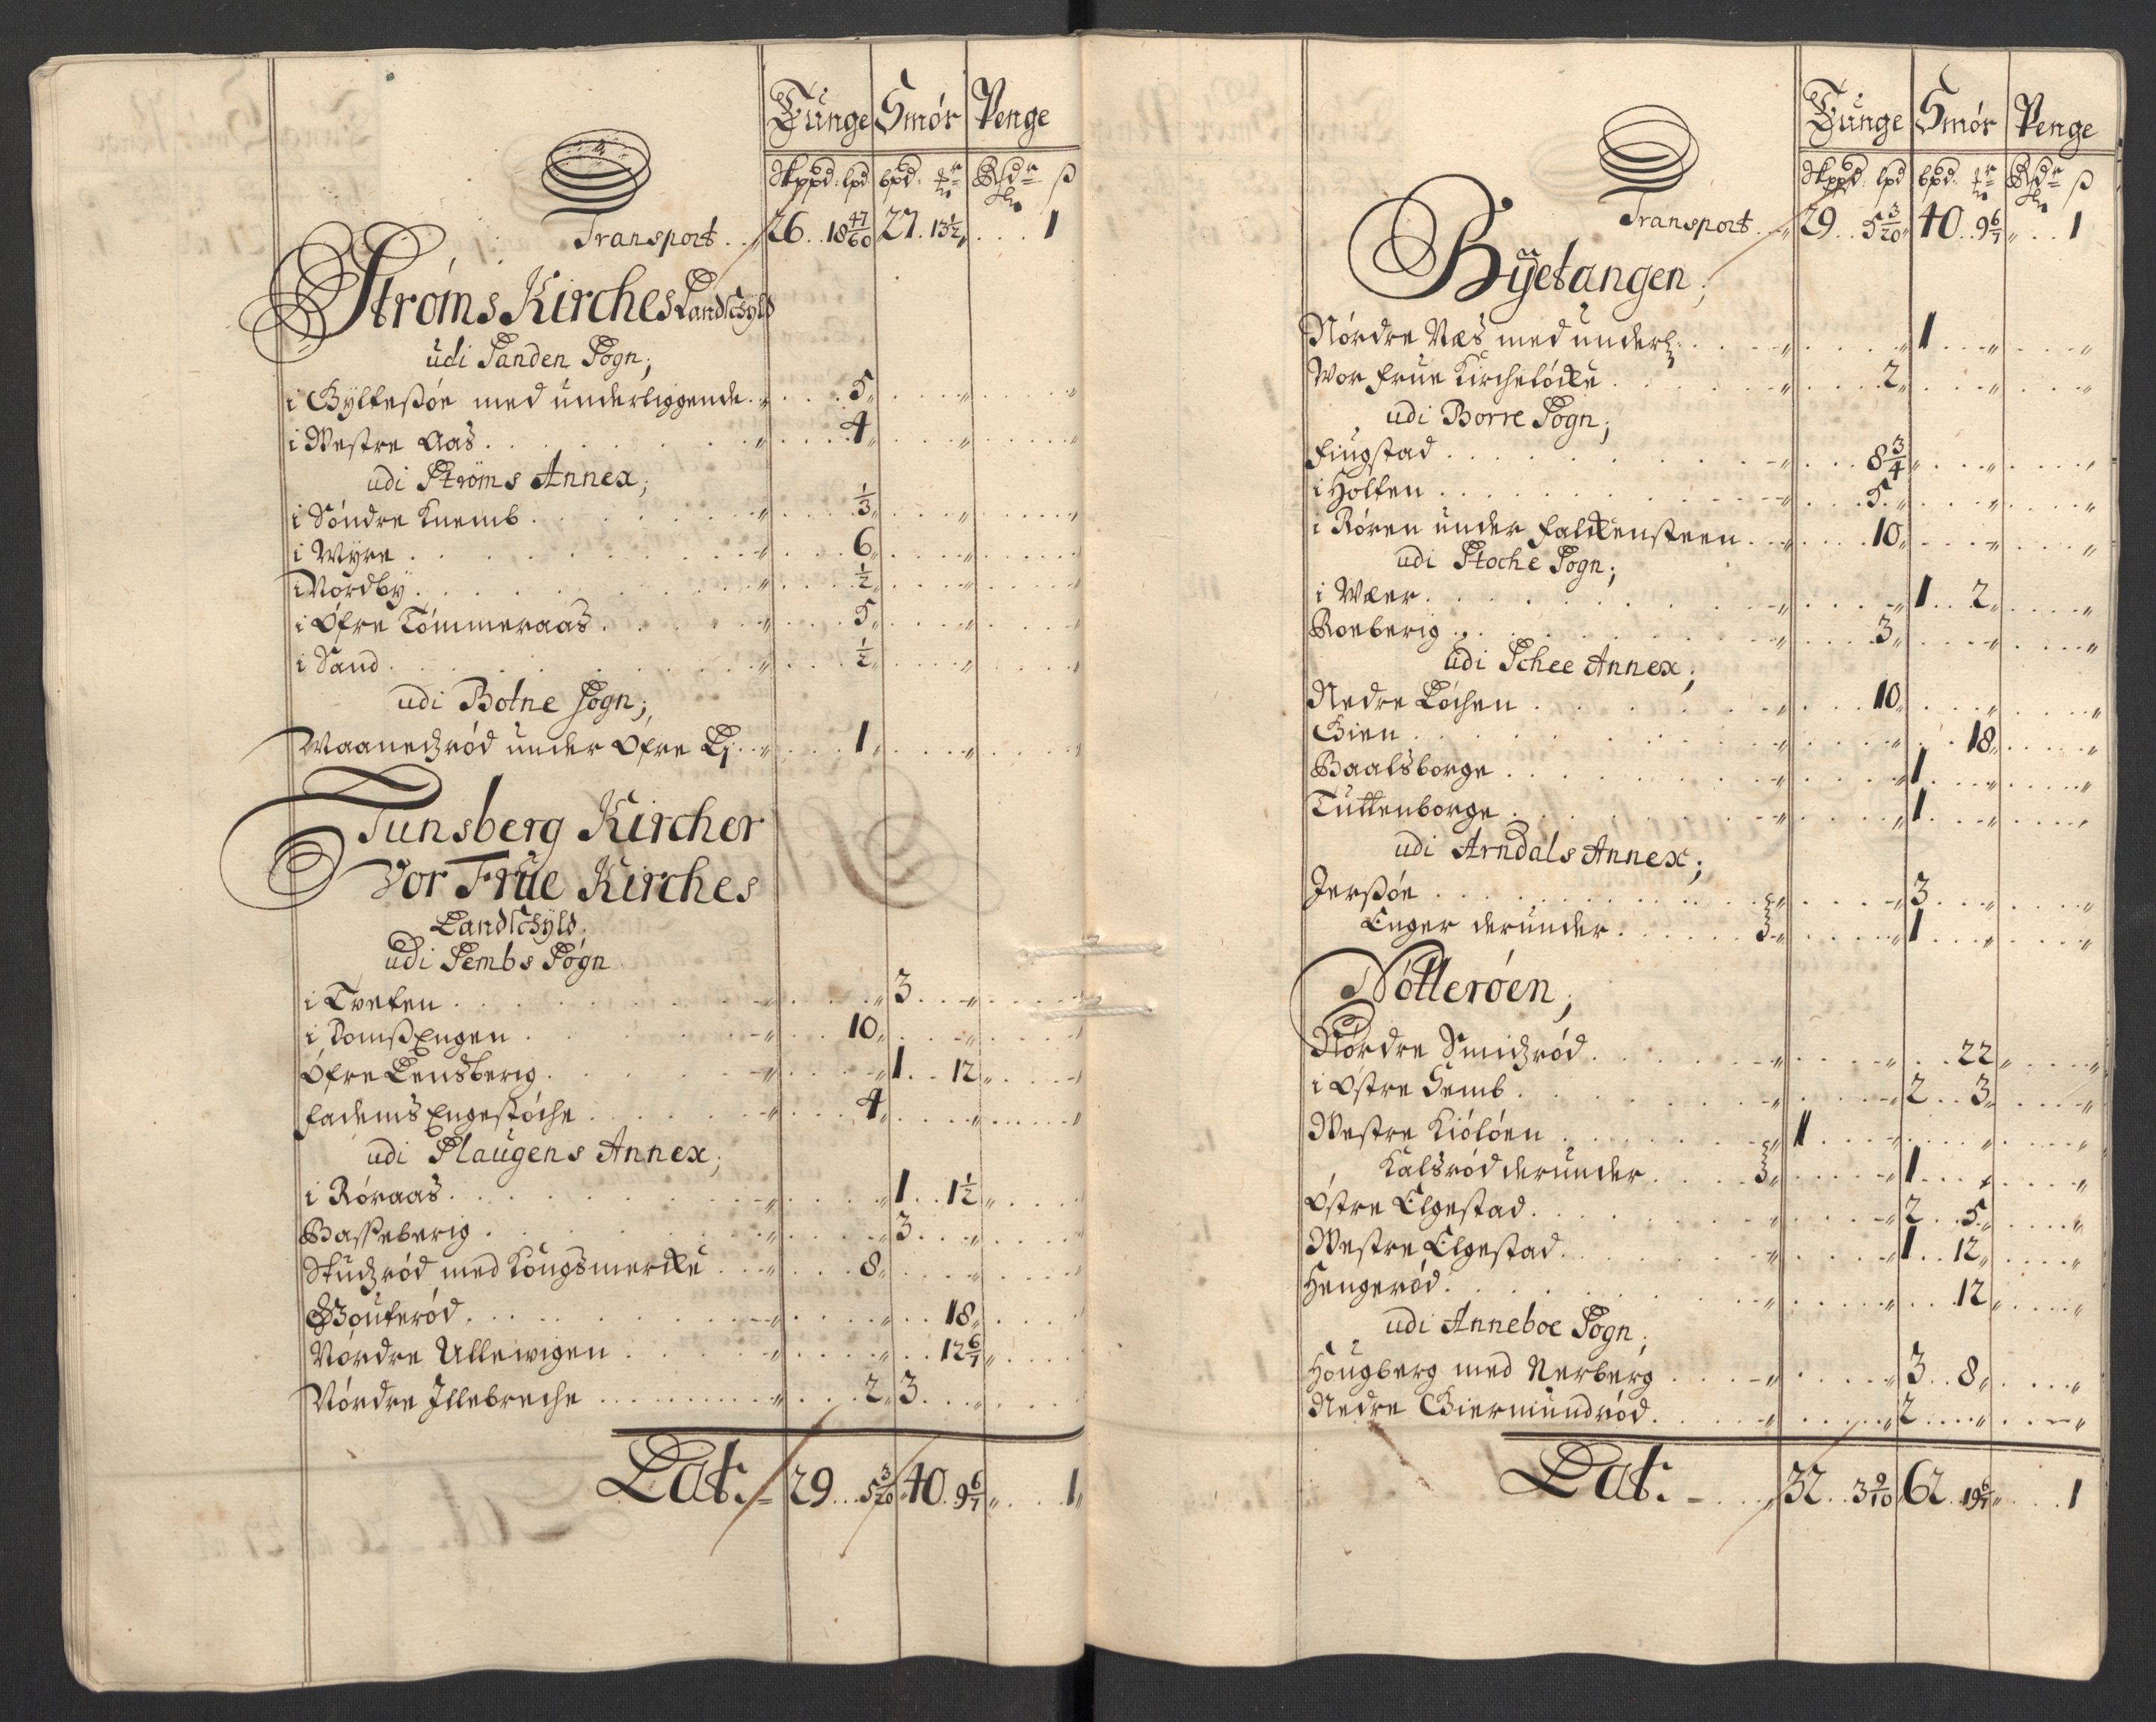 Tunge Smör Penge
Skppd: lpd bpd: Rdr ß
Transport . . 26 . . 18 47/60 27 . 13 1/2 . . . . 1
Ströms Kirches Landschÿld
udi Sanden Sogn;
i Gÿltesöe med underliggende . . 5
i Westre Aas . . 4
udi Ströms Annex;
i Söndre Knemb . . 1/3
i Wÿre . . 6
i Nordbÿ . . 1/2
i Öfre Tömmeraas . . 5
i Sand . . 1/2
udi Botne Sogn;
Waanedzröd under Öfre . . 1
Tunsberg Kircher
Vor Frue Kirches
Landschÿld
udi Sembs Sogn
i Tveten . . 3
i TomsEngen . . 10
Öfre Lensberig . . 1 . . 12
Fadems Engestöche . . 4
udi Slaugens Annex;
i Röraas . . 1 . . 1 1/2
Basseberig . . 3
Studzröd med Kongsmercke . . 8
Gouteröd . . 18
Nordre Ullewigen . . 12 6/7
Nördre Illebreche . . 2 3
Lat: 29 . . 5 3/20 40 . 9 6/7 . . 1
Tunge Smör Penge
Skppd: lpd bpd: Rdr ß
Transport . . 29 . . 5 3/20 40 . . 9 6/7 . . 1
Bÿetangen;
Nördre Næs med underl: . . 1
Wor Frue Kircheløcke . . 2
udi Borre Sogn;
Fiugstad . . 8 3/4
i Holten . . 5
i Rören under Falckensteen . . 10
udi Stoche Sogn;
i Wær . . 1 . . 2
Roeberig . . 3
udi Schee Annex;
Nedre Löchen . . 10
Gien . . 18
Baalsborge . . 1
Tuttenborge . . 1
udi Arndals Annex;
Jersöe . . 3
Enger derunder . . 1
Nötteröen;
Nördre Smidzröd . . 22
i Östre Semb . . 2 . . 3
Westre Kiölöen . . 1
Kalsröd derunder . . 1
Östre Elgestad . . 2 . . 5
Westre Elgestad . . 1 . . 12
Hengeröd . . 12
udi Anneboe Sogn;
Hougberg med Nerberg . . 3 . . 8
Nedre Giermundröd . . 2
Lat: 32 . . 3 9/10 62 . 19 6/7 . . 1